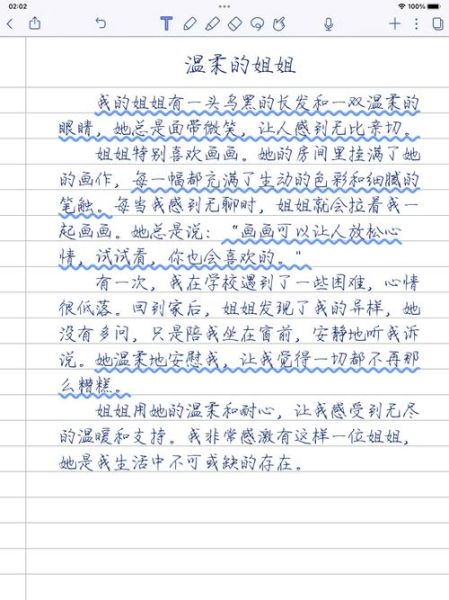 02:02
100%
温柔的姐姐
我的姐姐有一头乌黑的长发和一双温柔的
眼睛，她总是面带微笑，让人感到无比亲切。
姐姐特别喜欢画画。她的房间里挂满了她
的画作，每一幅都充满了生动的色彩和细腻的
笔触。每当我感到无聊时，姐姐就会拉着我一
起画画。她总是说：“画画可以让人放松心
情，试试看，你也会喜欢的。”
有一次，我在学校遇到了一些困难，心情
很低落。回到家后，姐姐发现了我的异样，她
没有多问，只是陪我坐在窗前，安静地听我诉
说。她温柔地安慰我，让我觉得一切都不再那
么糟糕。
姐姐用她的温柔和耐心，让我感受到无尽
的温暖和支持。我非常感激有这样一位姐姐，
她是我生活中不可或缺的存在。